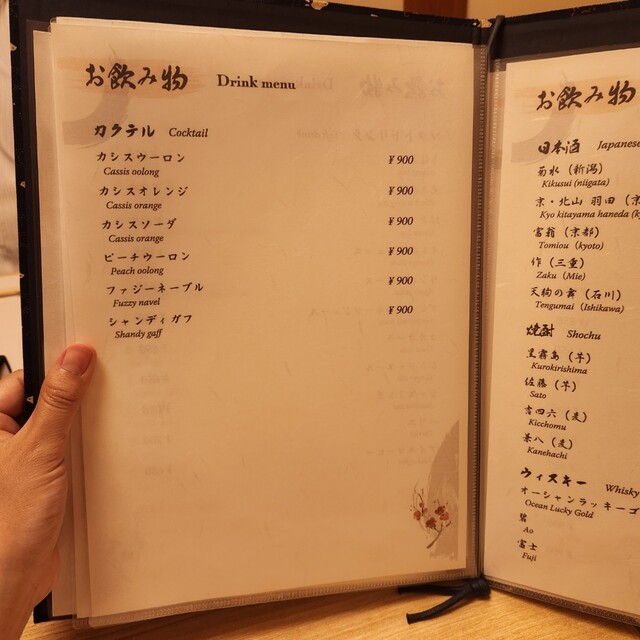 お飲み物 Drink menu
カクテル Cocktail
カシスウーロン ¥900
Cassis oolong
カシスオレンジ ¥900
Cassis orange
カシスソーダ ¥900
Cassis orange
ピーチウーロン ¥900
Peach oolong
ファジーネーブル ¥900
Fuzzy navel
シャンディガフ ¥900
Shandy gaff
お飲み物
日本酒 Japanese
菊水（新潟）
Kikusui (niigata)
京・北山 羽田（京
Kyo kitayama haneda
富翁（京都）
Tomiou (kyoto)
作（三重）
Zaku (Mie)
天狗の舞（石川）
Tengumai (Ishikawa)
焼酎 Shochu
黒霧島（芋）
Kurokirishima
佐藤（芋）
Sato
吉四六（麦）
Kicchomu
兼八（麦）
Kanehachi
ウィスキー Whisky
オーシャンラッキーゴ
Ocean Lucky Gold
碧
Ao
富士
Fuji